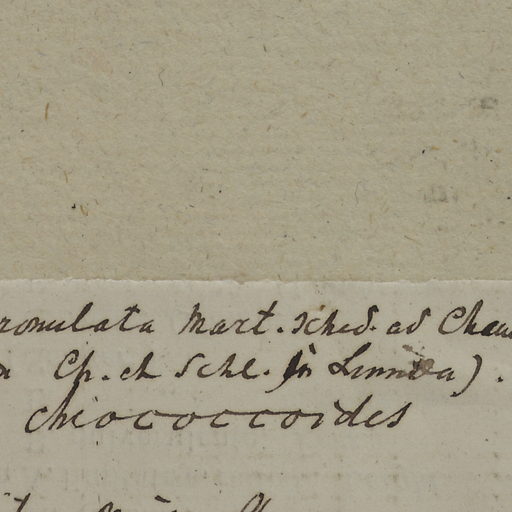 ronulata Mart. Sched. ad Cha
Ch. et Schl. in Linnæa).
chiococcoides